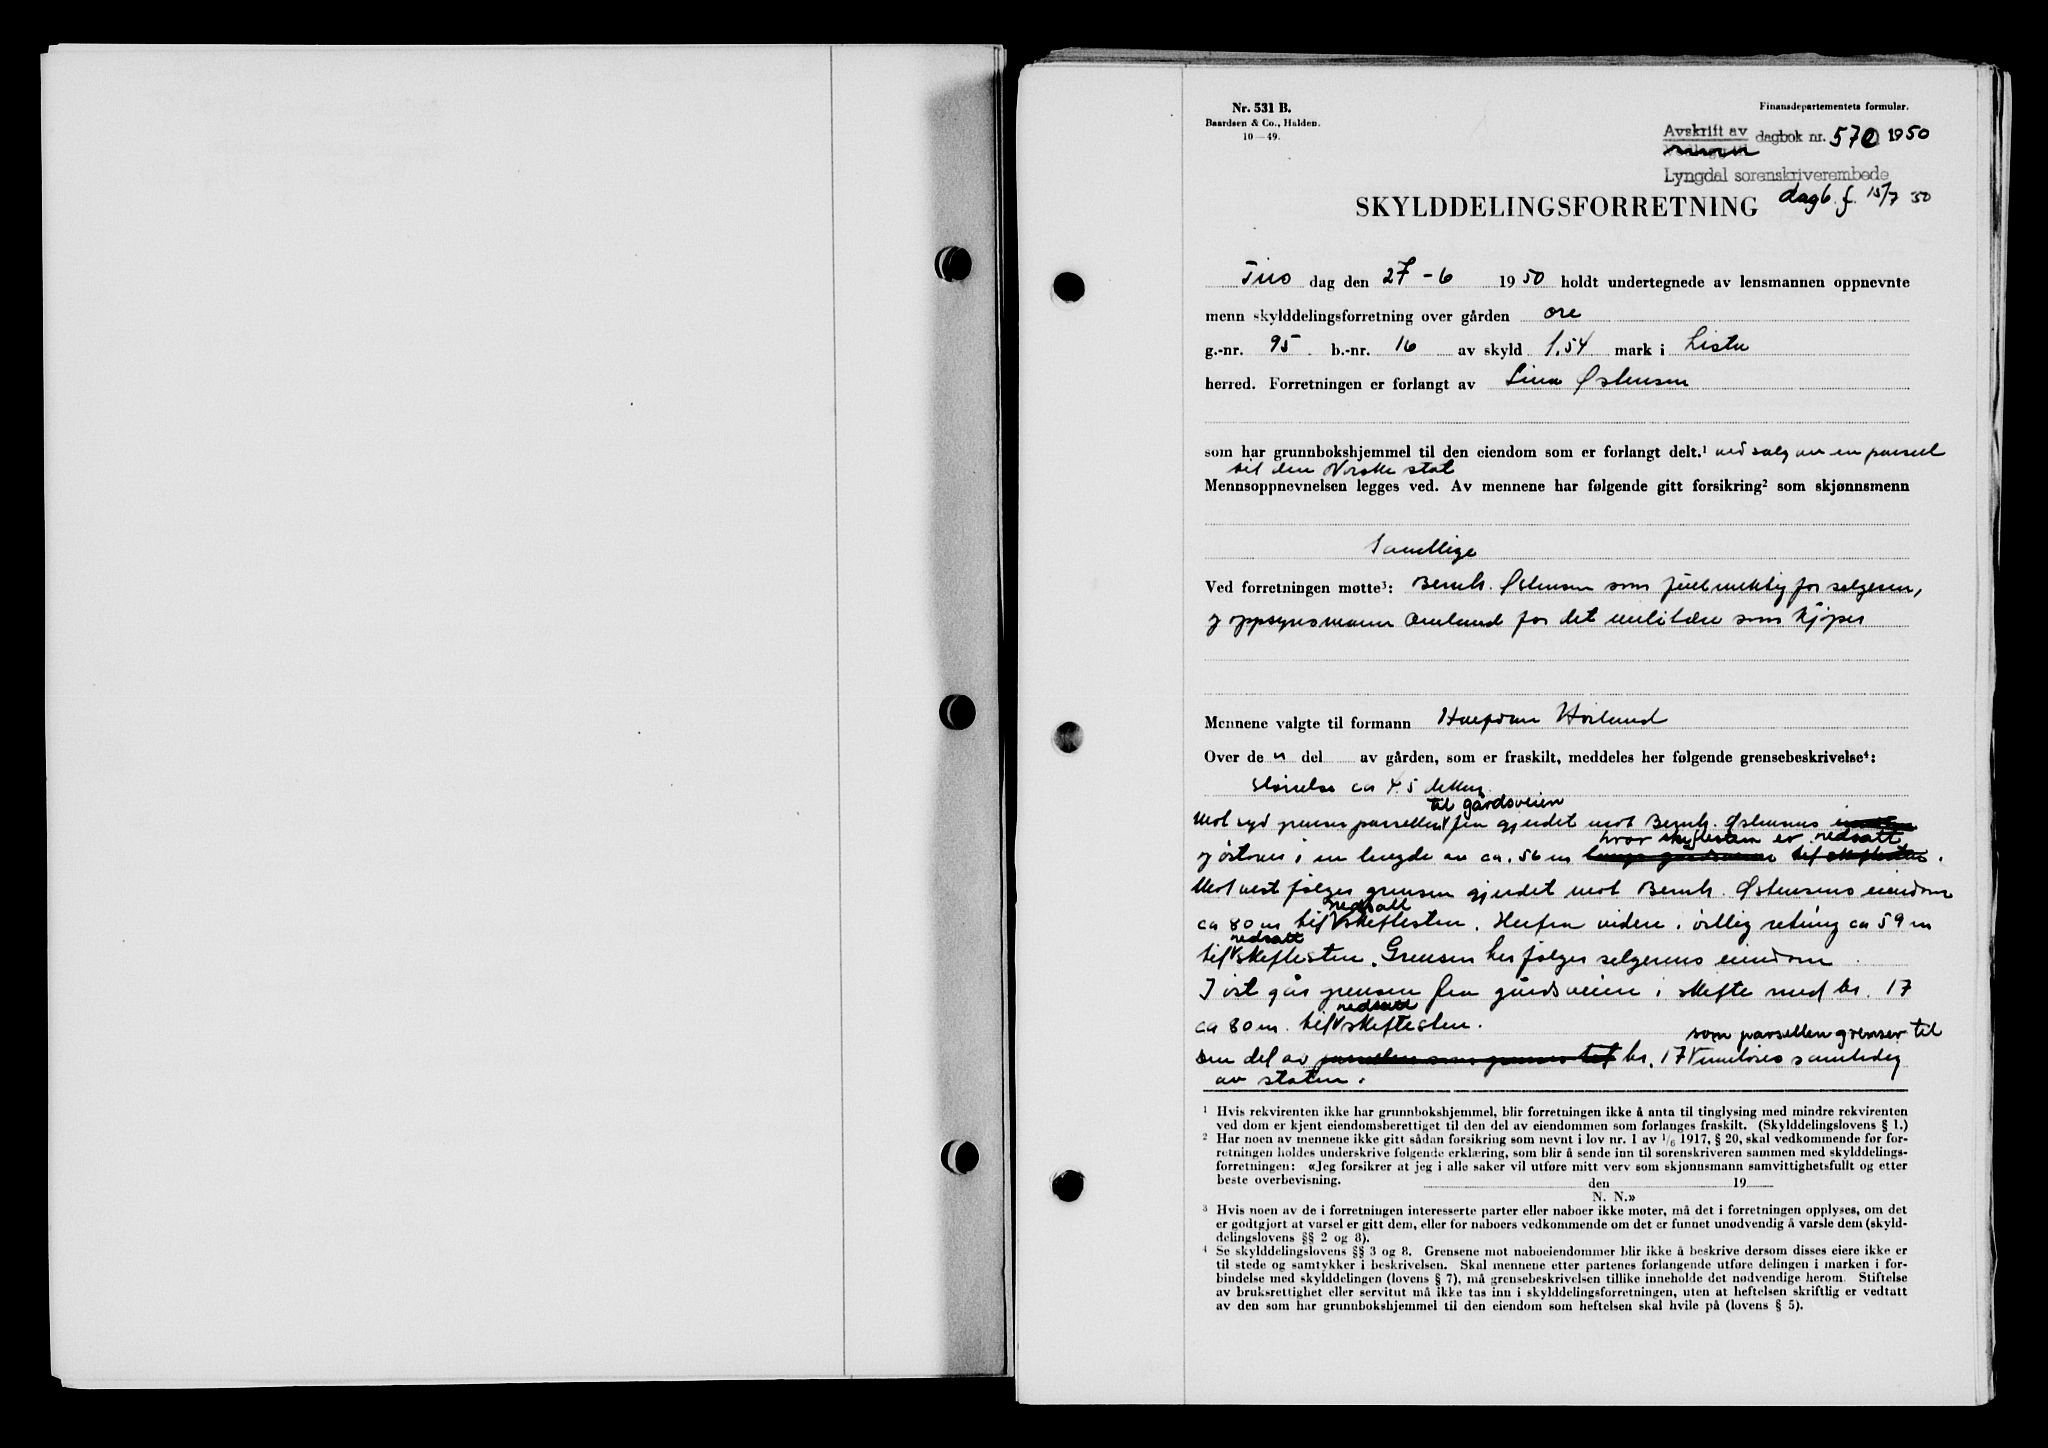 Nr. 531 B.
Baardsen & Co., Halden.
10—49.
Finansdepartementets formular.
Avskrift av dagbok nr. 570 1950
Lyngdal sorenskriverembede
dagb. f. 15/7 50
SKYLDDELINGSFORRETNING
Tirs dag den 27-6 1950 holdt undertegnede av lensmannen oppnevnte
menn skylddelingsforretning over gården Ore
g.-nr. 95 b.-nr. 16 av skyld 1,54 mark i Lista
herred. Forretningen er forlangt av Lina Østensen
som har grunnbokshjemmel til den eiendom som er forlangt delt.¹ ved salg av en parsel
til den Norske stat
Mennsoppnevnelsen legges ved. Av mennene har følgende gitt forsikring² som skjønnsmenn
Samtlige
Ved forretningen møtte³: Bernh. Østensen som fullmektig for selgeren,
og oppsynsmann Omlund for det militære som kjøper
Mennene valgte til formann Halfdan Hørlund
Over de n del av gården, som er fraskilt, meddeles her følgende grensebeskrivelse⁴:
Størrelse ca 4,5 dekar
til gårdsveien
Mot syd grenser parsellen fra gjerdet mot Bernh. Østensens
hvor skiftesten er nedsatt
og østover i en lengde av ca. 56 m langs gårdsveien til skiftesten.
Mot vest følger grensen gjerdet mot Bernh. Østensens eiendom
nedsatt
ca 80 m til skiftesten. Herfra videre i östlig retning ca 59 m
nedsatt
til skiftesten. Grensen her følger selgerens eiendom
I öst går grensen fra gårdsveien i skifte med br. 17
nedsatt
ca 80 m. til skiftesten.
som parsellen grenser til
Den del av parsellen som grenser til br. 17 innløses samtidig
av staten.
¹ Hvis rekvirenten ikke har grunnbokshjemmel, blir forretningen ikke å anta til tinglysing med mindre rekvirenten
ved dom er kjent eiendomsberettiget til den del av eiendommen som forlanges fraskilt. (Skylddelingslovens § 1.)
² Har noen av mennene ikke gitt sådan forsikring som nevnt i lov nr. 1 av 1/6 1917, § 20, skal vedkommende før for-
retningen holdes underskrive følgende erklæring, som blir å sende inn til sorenskriveren sammen med skylddelings-
forretningen: «Jeg forsikrer at jeg i alle saker vil utføre mitt verv som skjønnsmann samvittighetsfullt og etter
beste overbevisning. den 19
N. N.»
³ Hvis noen av de i forretningen interesserte parter eller naboer ikke møter, må det i forretningen opplyses, om det
er godtgjort at varsel er gitt dem, eller for naboers vedkommende om det er funnet unødvendig å varsle dem (skyld-
delingslovens §§ 2 og 8).
⁴ Se skylddelingslovens §§ 3 og 8. Grensene mot naboeiendommer blir ikke å beskrive dersom disses eiere ikke er
til stede og samtykker i beskrivelsen. Skal mennene etter partenes forlangende utføre delingen i marken i for-
bindelse med skylddelingen (lovens § 7), må grensebeskrivelsen tillike inneholde det nødvendige herom. Stiftelse
av bruksrettighet eller servitut må ikke tas inn i skylddelingsforretningen, uten at heftelsen skriftlig er vedtatt
av den som har grunnbokshjemmel til den eiendom som heftelsen skal hvile på (lovens § 5).